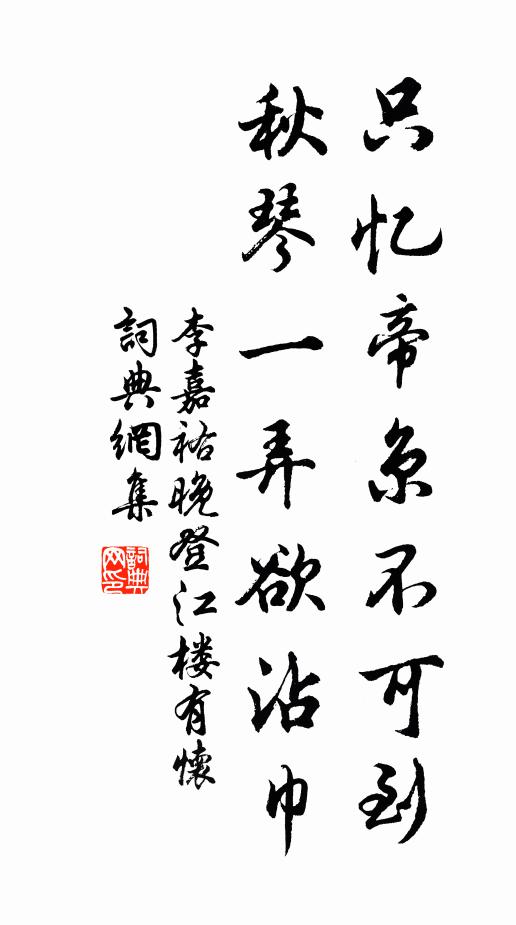 只忆帝京不可到
秋琴一弄欲沾巾
李嘉祐晚登江楼有懷
詞典網集
詞典网印